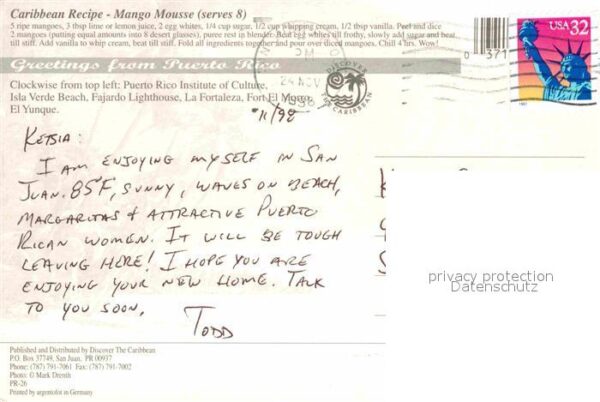 Caribbean Recipe - Mango Mousse (serves 8)
5 ripe mangoes, 3 tbsp lime or lemon juice, 2 egg whites, 1/4 cup sugar, 1/2 cup whipping cream, 1/2 tbsp vanilla. Peel and dice
2 mangoes (putting equal amounts into 8 desert glasses), puree rest in blender. Beat egg whites till frothy, slowly add sugar and beat,
till stiff. Add vanilla to whip cream, beat till stiff. Fold all ingredients together and pour over diced mangoes. Chill 4 hrs. Wow!
Greetings from Puerto Rico
Clockwise from top left: Puerto Rico Institute of Culture,
Isla Verde Beach, Fajardo Lighthouse, La Fortaleza, Fort El Morro,
El Yunque.
PM
24 NOV
1998
DISCOVER
THE CARIBBEAN
0 371
USA 32
1997
11/98
KETSIA:
I AM ENJOYING MYSELF IN SAN
JUAN. 85°F, SUNNY, WAVES ON BEACH,
MARGARITAS & ATTRACTIVE PUERTO
RICAN WOMEN. IT WILL BE TOUGH
LEAVING HERE! I HOPE YOU ARE
ENJOYING YOUR NEW HOME. TALK
TO YOU SOON,
TODD
privacy protection
Datenschutz
Published and Distributed by Discover The Caribbean
P.O. Box 37749, San Juan, PR 00937
Phone: (787) 791-7061 Fax: (787) 791-7002
Photo: © Mark Drenth
PR-26
Printed by argentofot in Germany